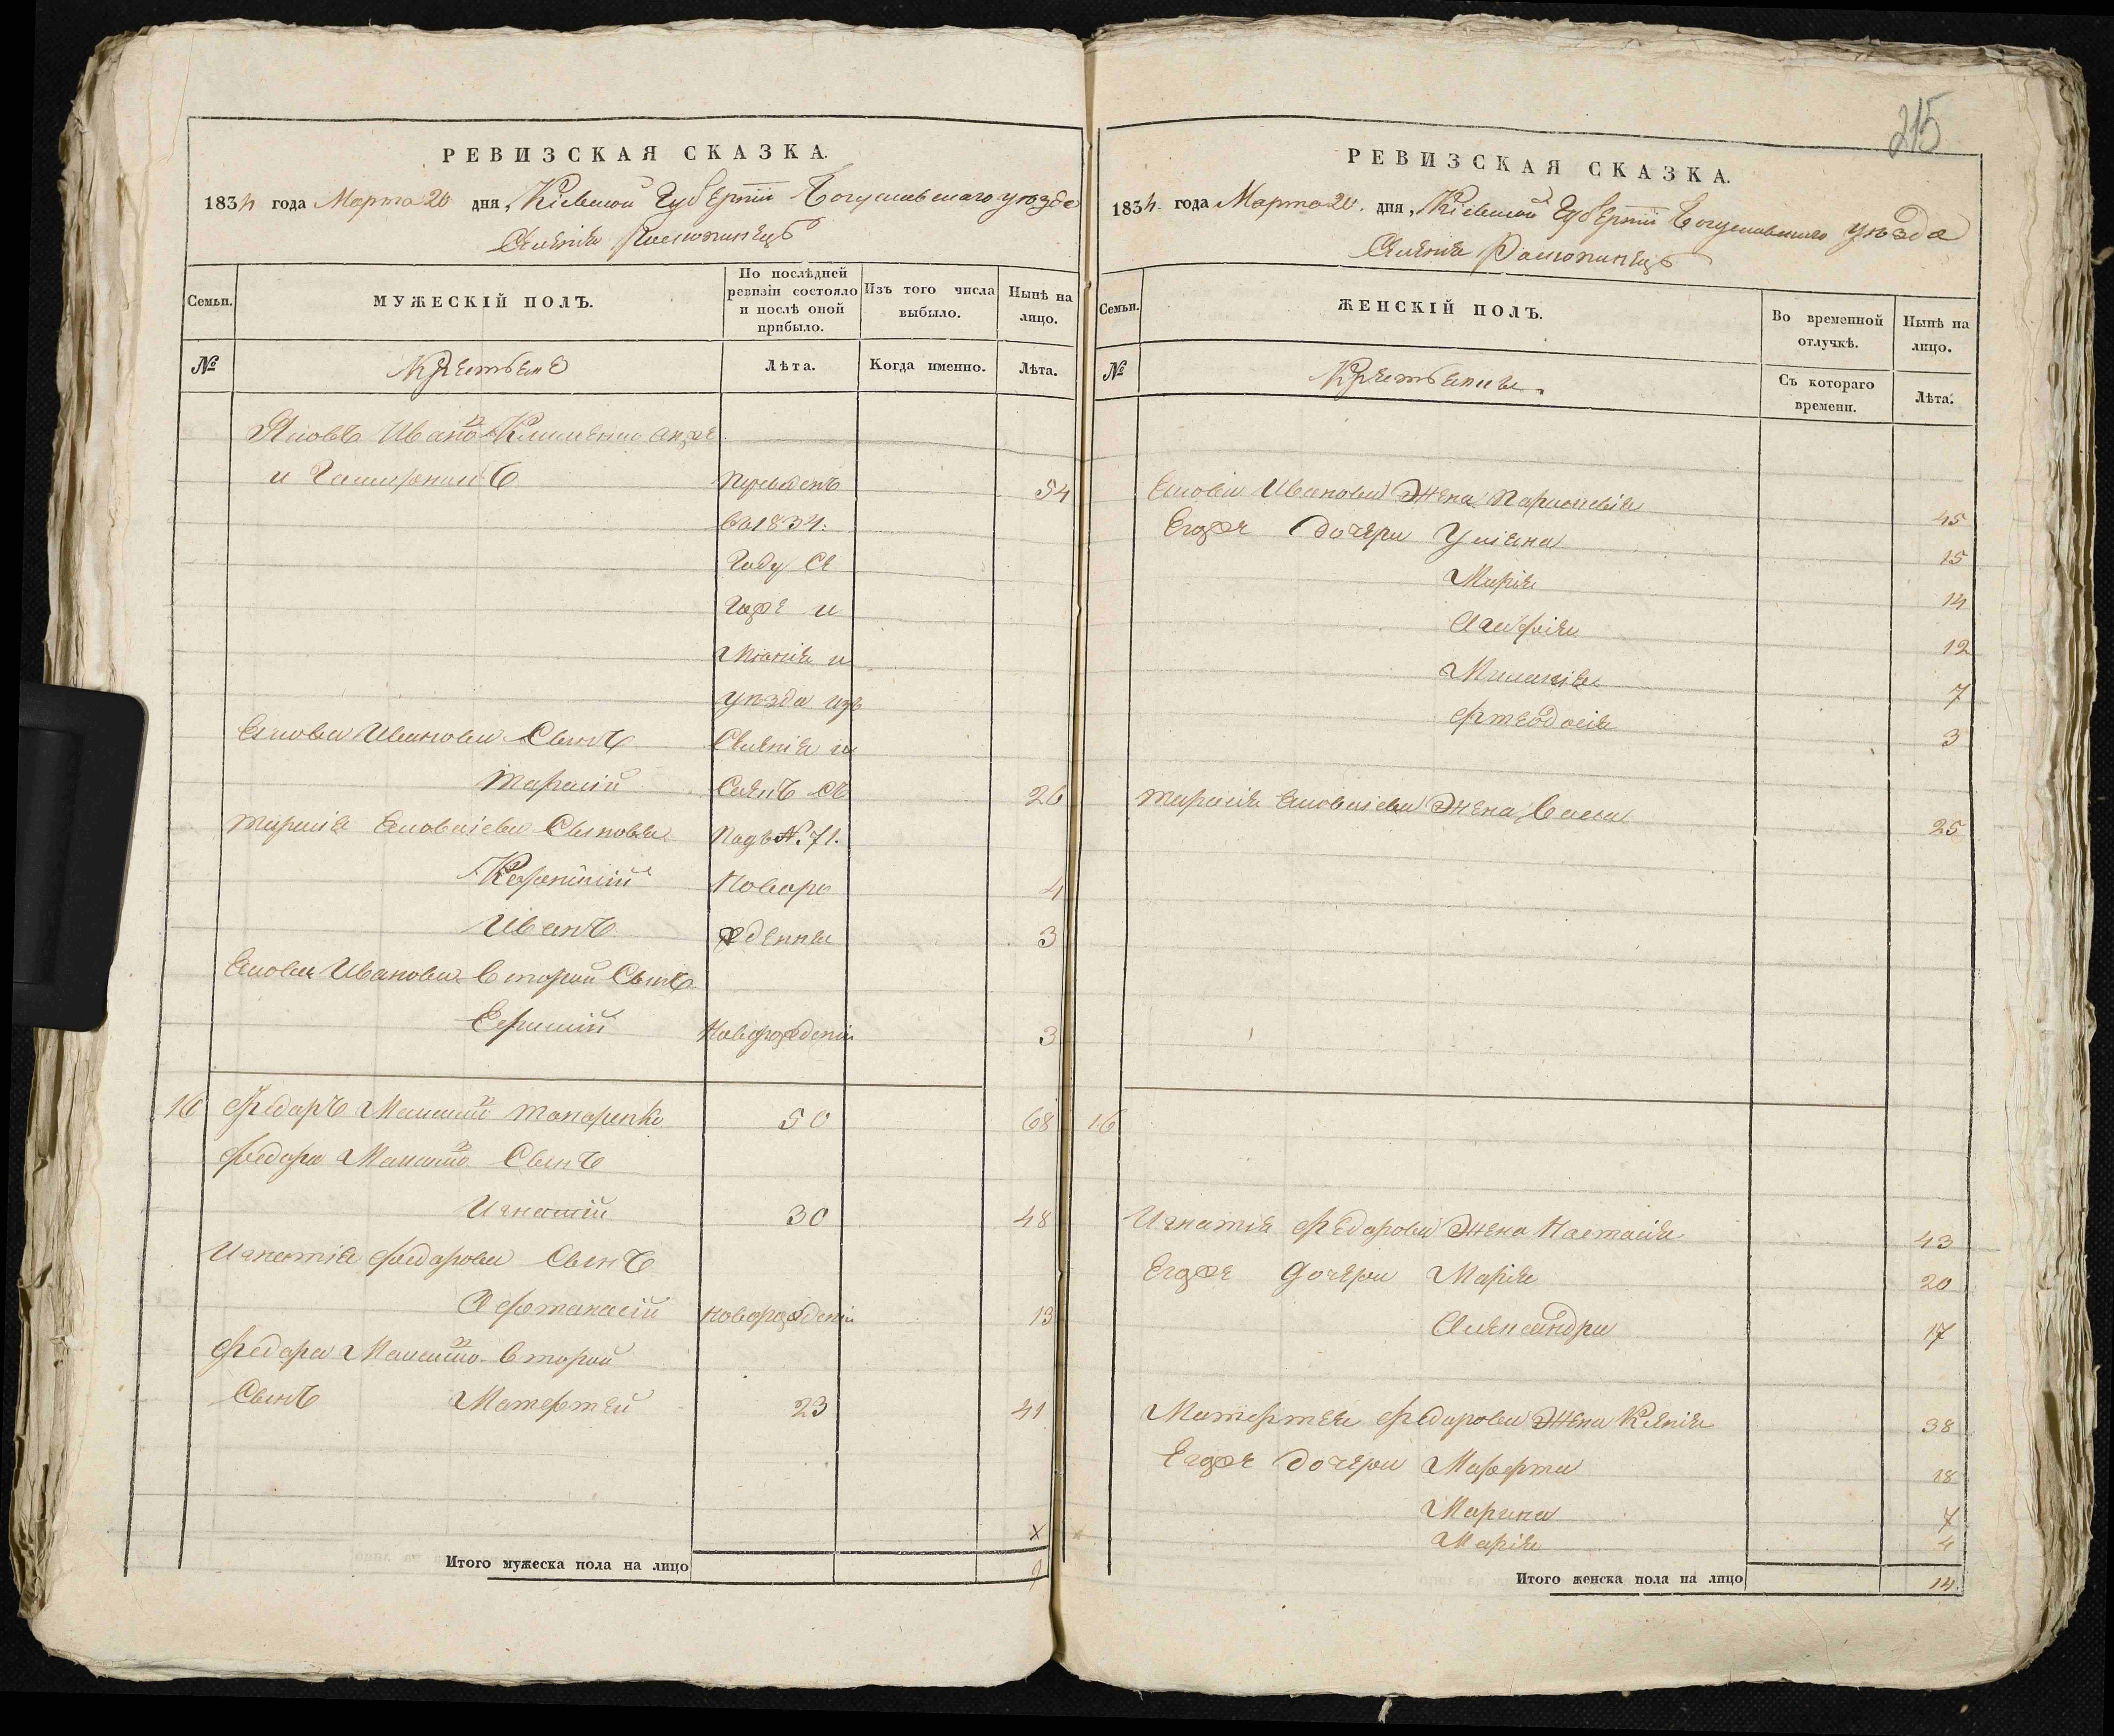 РЕВИЗСКАЯ СКАЗКА.
1834 года Марта 20 дня, Кіевской Губерніи Богуславскаго уезда
Селенія
Семьи.
МУЖЕСКІЙ ПОЛЪ.
По послѣдней ревизіи состояло и послѣ оной прибыло.
Изъ того числа выбыло.
Нынѣ на лицо.
№
Крестьяне
Лѣта.
Когда именно.
Лѣта.
Яковъ Ивановъ Клименко онже
и
Переведенъ
54
въ 1834.
Году Се
гоже и
Имѣнія и
уѣзда изъ
Якова Иванова Сынъ
Селенія и
Тарасій
26
Тарасія Яковлева Сыновья
Подъ № 71.
Новоро
4
Иванъ
жденныя
3
Якова Иванова Второй Сынъ
Герасим
Новорожденный
3
16 Федоръ Токаренко
50
68
Федора Сынъ
Игнатій
30
48
Игнатія Федорова Сынъ
Афтанасій
новорожденный
13
Федора Второй
Сынъ Матфтей
23
41
Итого мужеска пола на лицо
9
215
РЕВИЗСКАЯ СКАЗКА.
1834 года Марта 20. дня, Кіевской Губерніи Богуславского уѣзда
Селенія
Семьи.
ЖЕНСКІЙ ПОЛЪ.
Во временной отлучкѣ.
Нынѣ на лицо.
№
Крестьянки.
Съ котораго времени.
Лѣта.
Якова Иванова Жена Параскевія
45
Егоже дочери Уліяна
15
Марія
14
12
Миланія
7
Фтеодосія
3
Тарасія Яковлева Жена Васса
25
16
Игнатія Федорова Жена Настасія
43
Егоже Дочери Марія
20
Александра
17
Матфтея Федорова Жена Ксенія
38
Егоже дочери Марфта
18
Марина
7
Марія
4
Итого женска пола на лицо
14